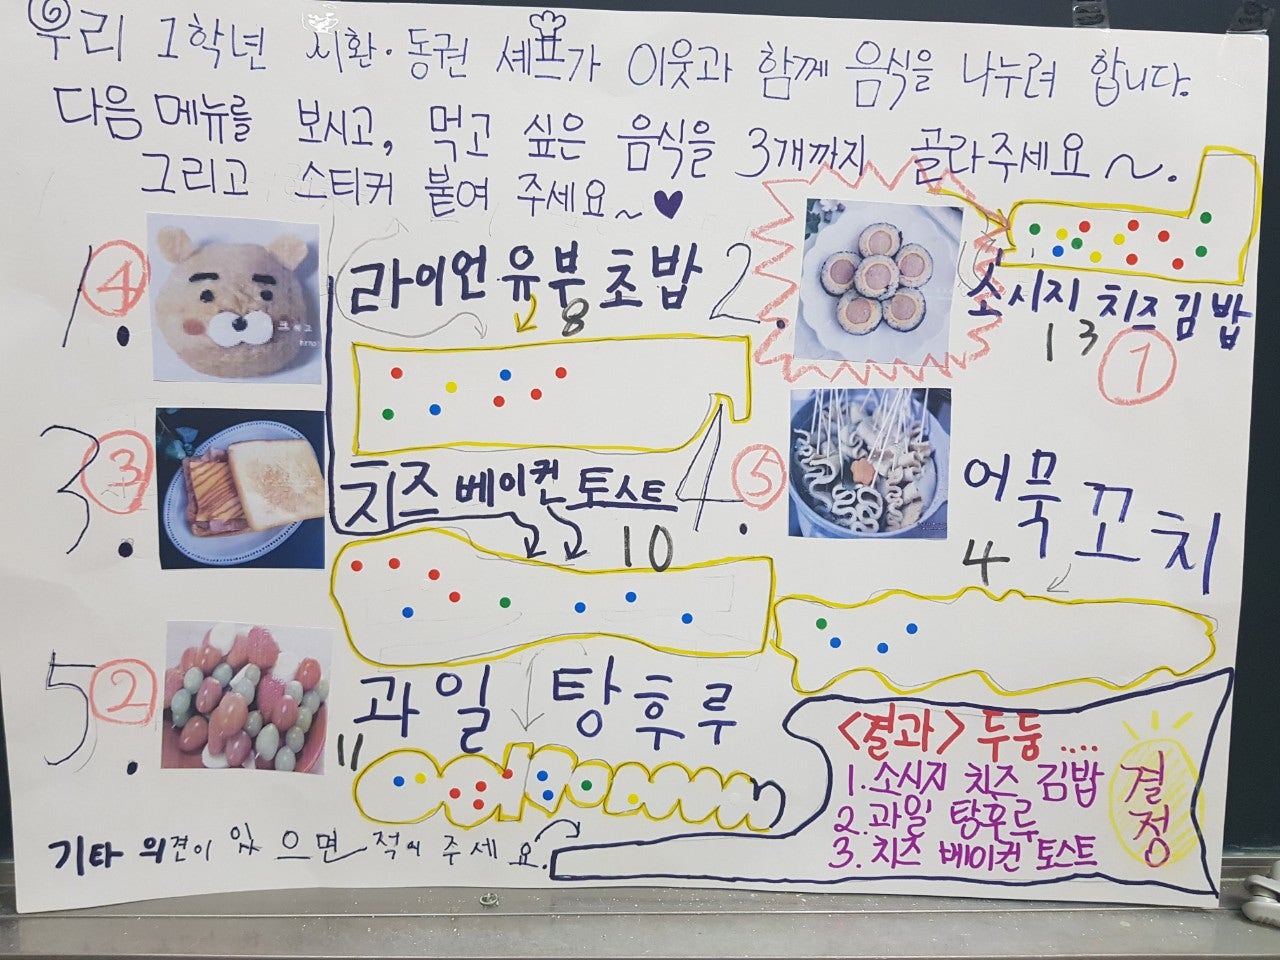 우리 1학년 시환·동권 셰프가 이웃과 함께 음식을 나누려 합니다.
다음 메뉴를 보시고, 먹고 싶은 음식을 3개까지 골라주세요~.
그리고 스티커 붙여 주세요~♥
1. ④
라이언 유부초밥
8
2.
소시지 치즈김밥
13 ①
3. ③
치즈 베이컨 토스트
10
4. ⑤
어묵꼬치
4
5. ②
과일 탕후루
11
<결과> 두둥....
1. 소시지 치즈 김밥
2. 과일 탕후루
3. 치즈 베이컨 토스트
결정
기타 의견이 있으면 적어 주세요.